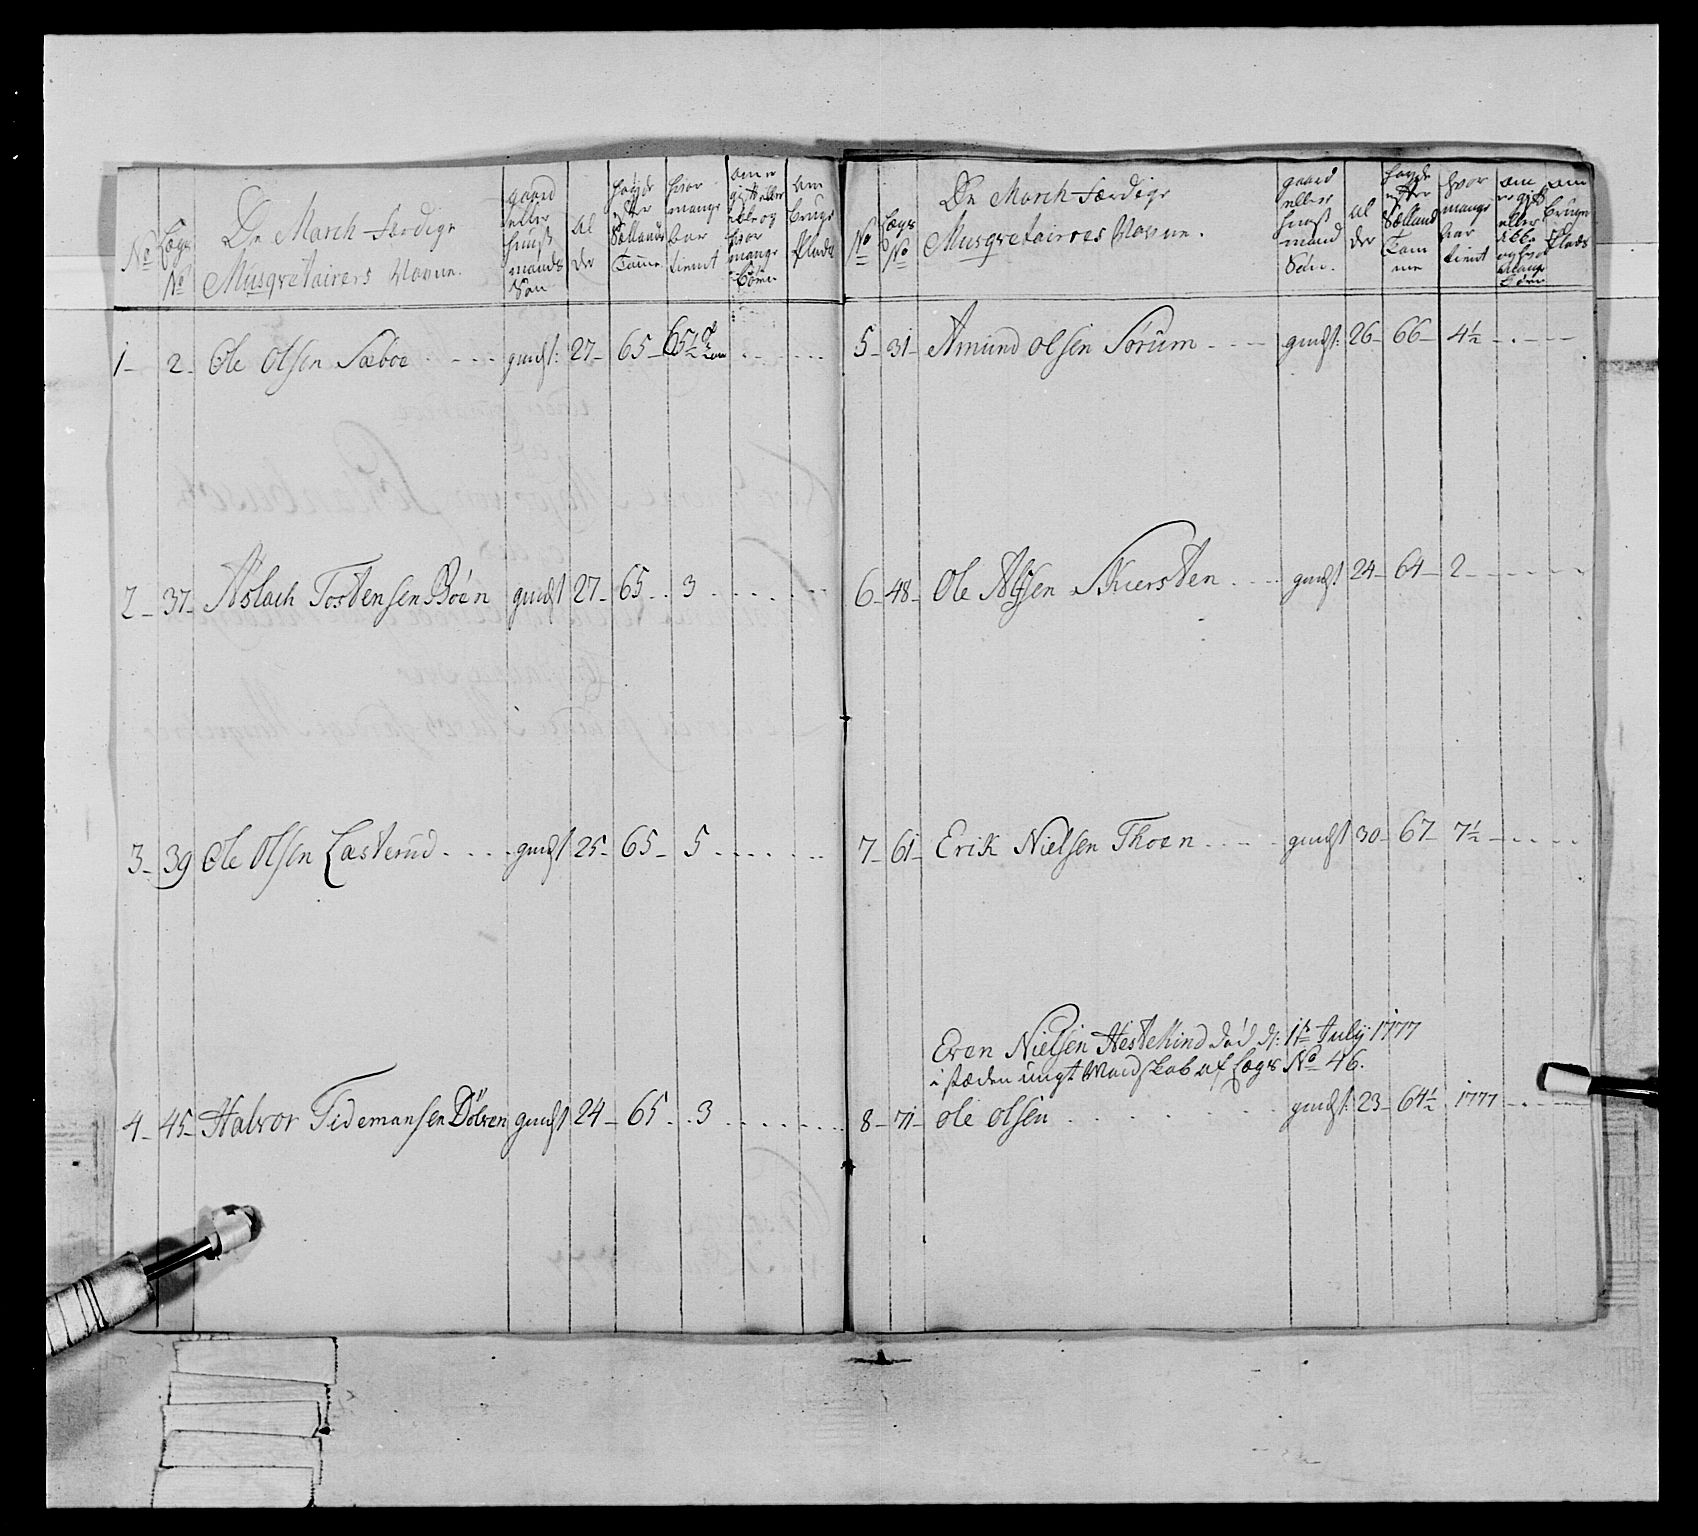 No
Lægs No
De March Færdige
Musqvetairers Navne.
gaard eller huus mands Søn
Al der
høyde efter Siellands Tomme
hvor mange har tient
om er gift eller ikke og hvor mange Børn
om Bruger Plads
1 - 2 - Ole Olsen Sæboe - - - gmdss: 27 - 65 -
2 - 37 - Aslach Tostensen Böen gmdss 27 - 65 . . 3 . . . . . .
3 - 39 Ole Olsen Læsterud . . . . gmdss 25 - 65 - 5 - . . . . . .
4 - 45 - Halvor Tidemansen Dölven gmdss 24 - 65 . . 3 . . . . . .
No
Lægs No
De March Færdige
Musqvetairers Navne.
gaard eller huus mand Søn.
Al der
høyde efter Siælland Tom me
hvor mange har tient
om er gift eller ikke og hvor mange børn
om bruger Plads
5 - 31 - Amund Olsen Sørum - - - gmdss: 26 - 66 - 4 1/2 - . - - -
6 - 48 - Ole Skiersten . . . . gmdss 24 - 64 - 2 - - - - -
7 - 61 - Erik Nielsen Thoen . . - - - gmdss 30 - 67 - 7 1/2 - . . . .
Even Nielsen Hestekind død d: 1te July 1777
i stæden ungt Mandskab af Lægs No 46.
8 - 71 - Ole Olsen . . . . . . gmdss: 23 - 64 1/2 - 1777 - . - - -